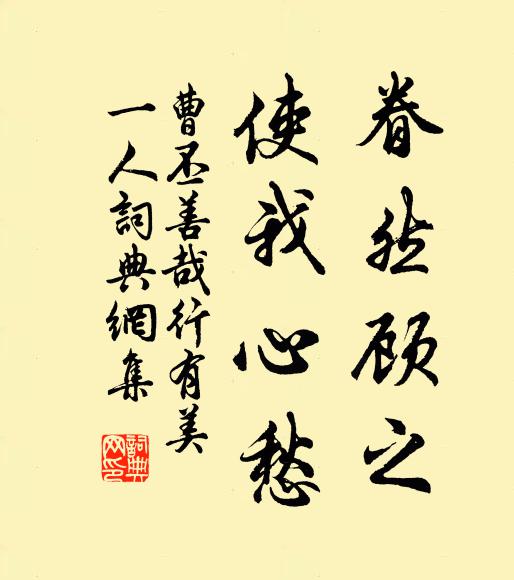 眷然顾之
使我心愁
曹丕善哉行有美
一人詞典網集
詞典
网印